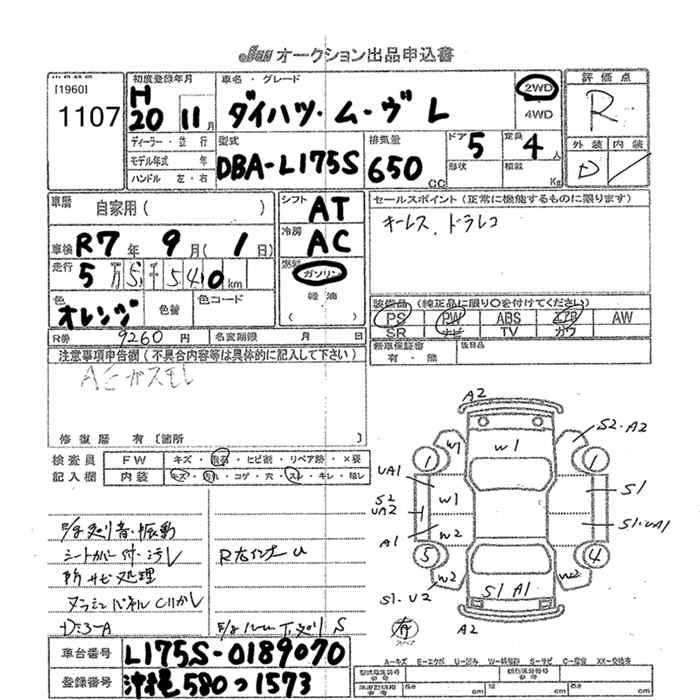 オークション出品申込書
[1960]
1107
初度登録年月
H
20 11月
車名・グレード
ダイハツ・ム・ヴ L
2WD
4WD
評価点
R
ディーラー・並行
モデル年式 年
ハンドル 左・右
型式
DBA-L175S
排気量
650 CC
ドア 5
形状
定員 4人
積載 Kg
外装 内装
D
車暦
自家用( )
シフト
AT
セールスポイント (正常に機能するものに限ります)
キーレス、ドラレコ
車検 R7年 9月(1日)
冷房
AC
走行
5万5千540km
燃料
ガソリン
軽油
( )
色
オレンジ
色替
色コード
装備品 (純正品に限り○を付けてください)
PS PW ABS エアB AW
SR ナビ TV カワ
R券 9260円 名変期限 月 日
新車保証書
有・無
後日品
注意事項申告欄(不具合内容等は具体的に記入して下さい)
ACガスモレ
修復歴 有 [箇所 ]
検査員
記入欄
FW キズ・飛石・ヒビ割・リペア跡・×要
内装 キズ・汚れ・コゲ・穴・スレ・キレ・破レ
シートカバー付
サビ処理
D:3-A
A2
S2・A2
W1
W1
1
1
UA1
S2
UA2
W1
S1
A1
W2
S1・UA1
5
4
W2
W2
S1 A1
S1・U2
A2
有
車台番号 L175S-0189070
登録番号 沖縄580つ1573
A-キズ E-エクボ U-凹み W-補修跡 S-サビ C-腐食 XX-交換済